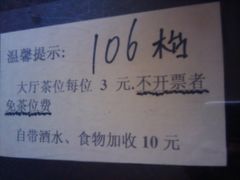 106 桓
温馨提示:
大厅茶位每位 3 元.不开票者
免茶位费
自带酒水、食物加收 10 元